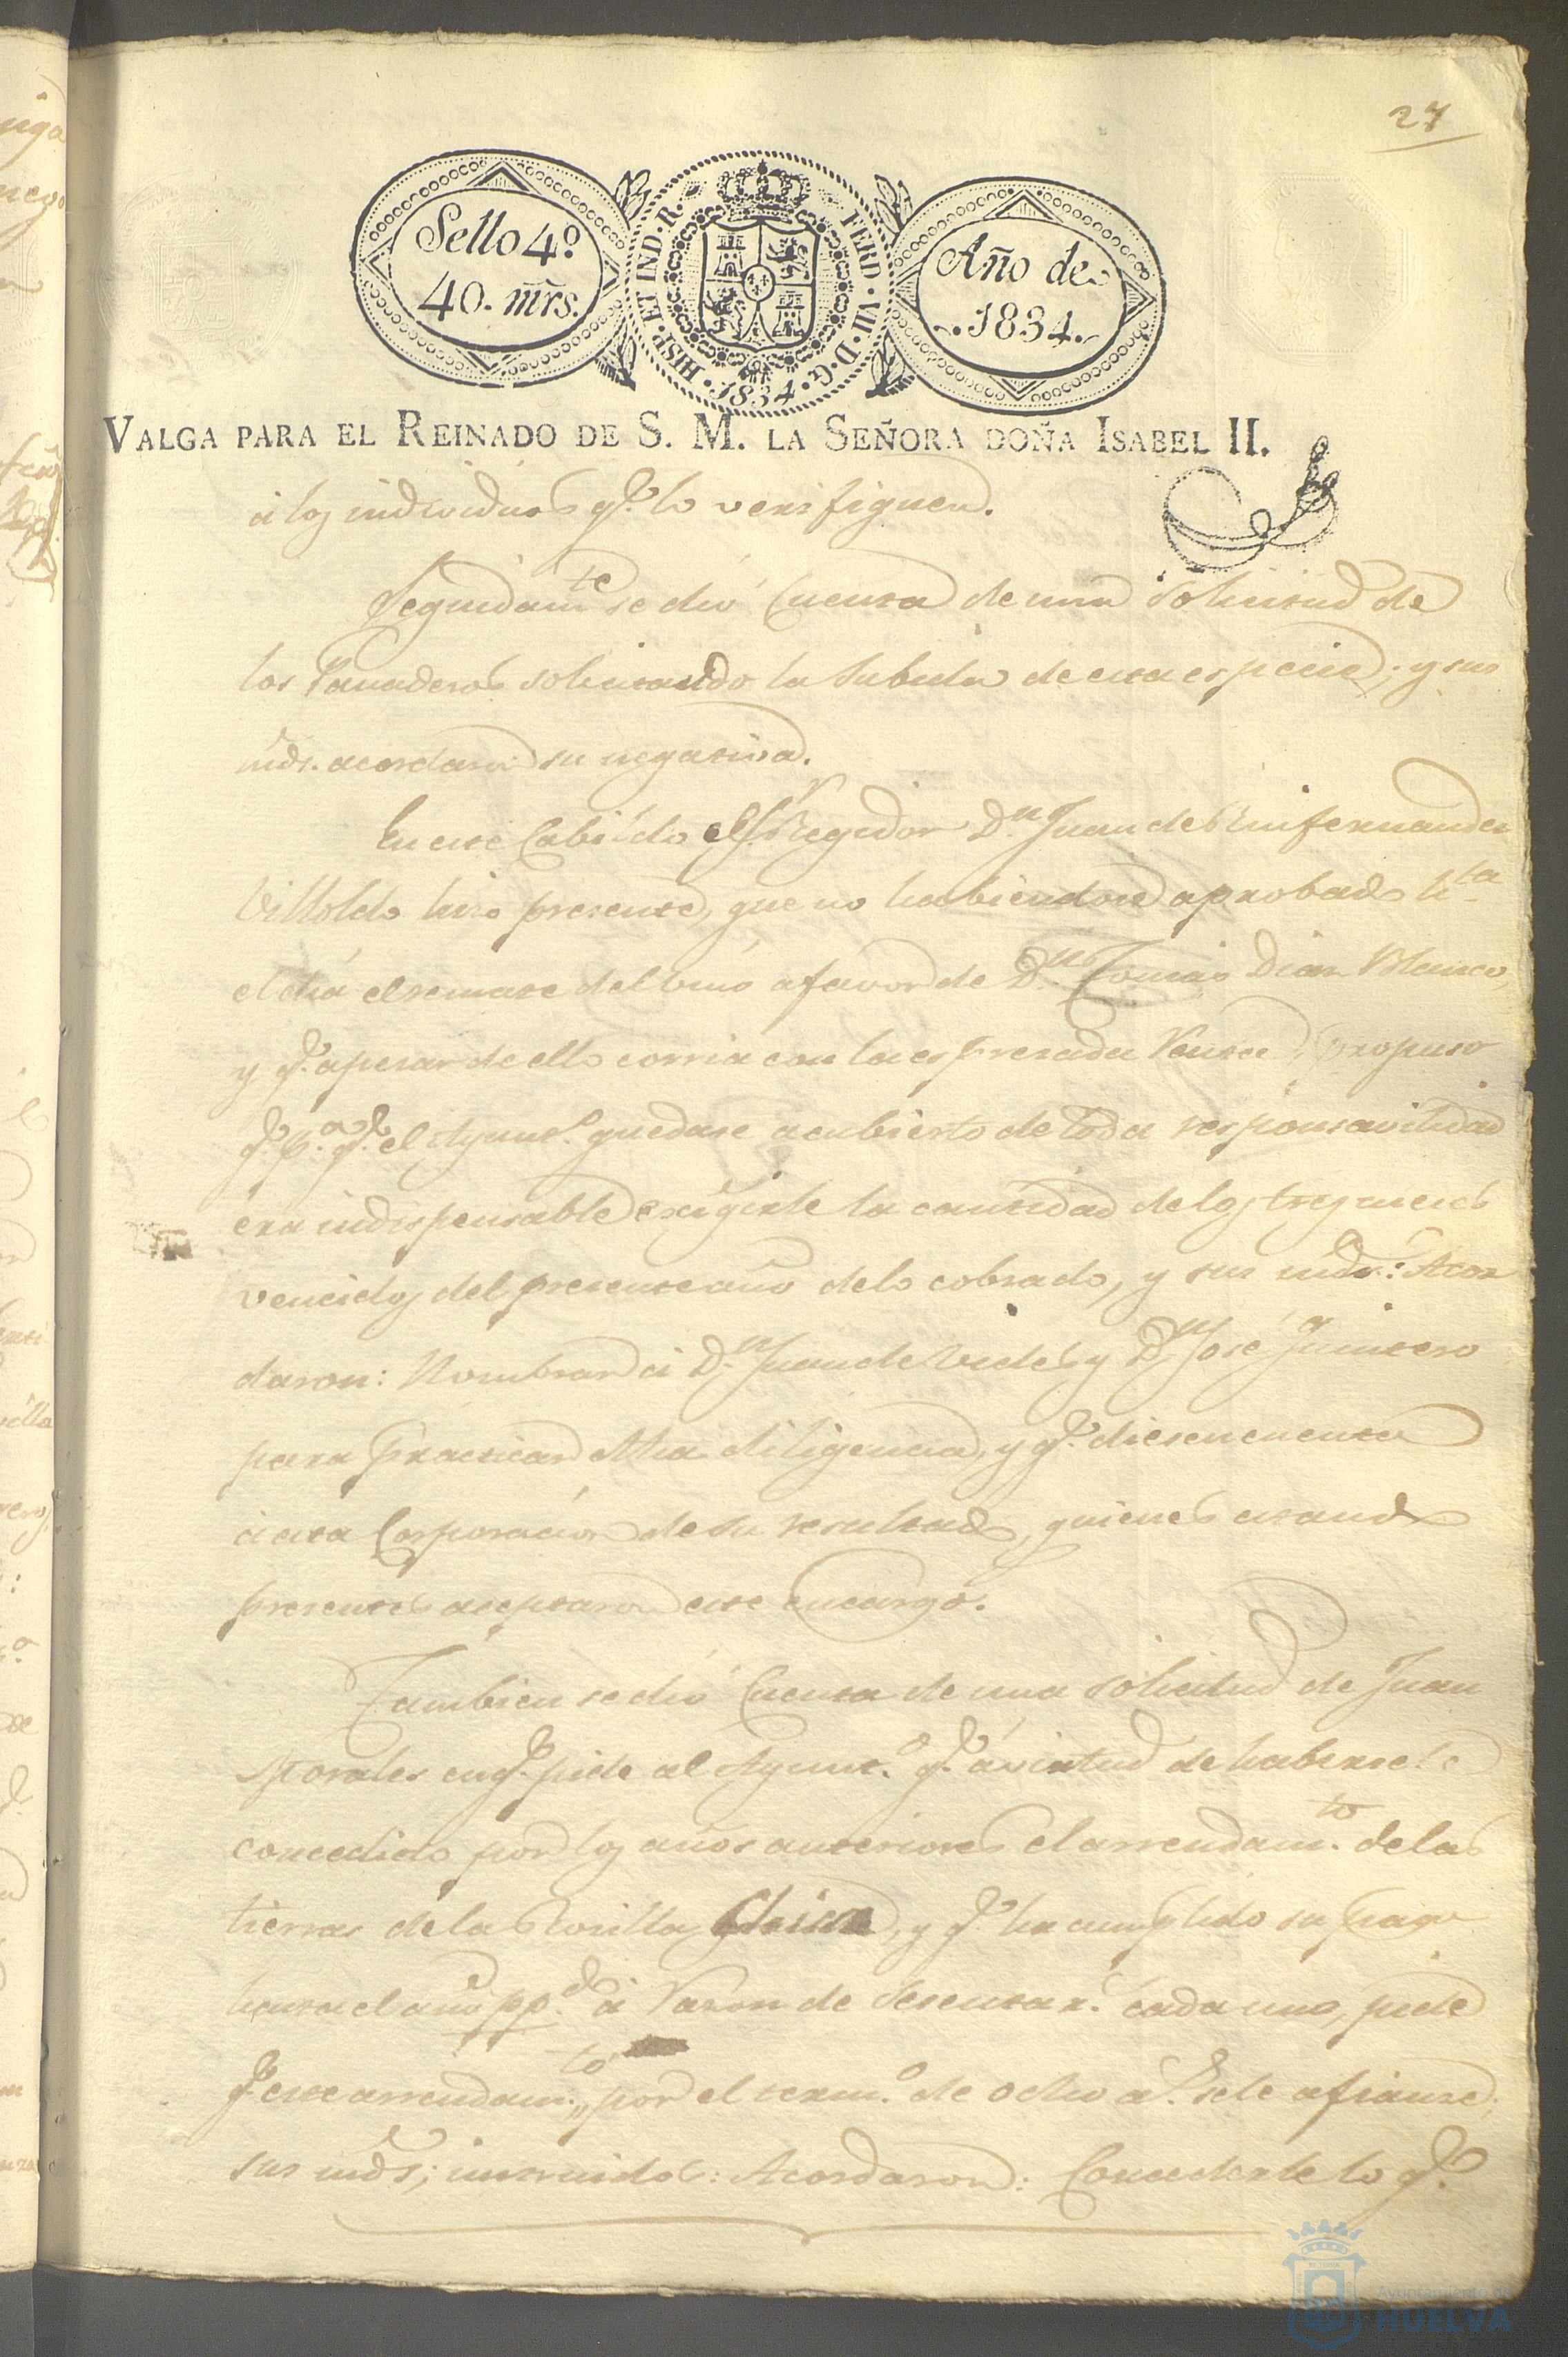 27
Sello 4º
40. mrs.
HISP. ET IND. R. FERD. VII. D. G. 1834.
Año de
1834.
VALGA PARA EL REINADO DE S. M. LA SEÑORA DOÑA ISABEL II.
á los individuos q.e lo verifiquen.
Seguidam.te se dió Cuenta de una Solicitud de
los Panaderos solicitando la Subida de esta especie; y sus
mds. acordaron su negativa.
En este Cabildo el S.r Regidor D.n Juan de
Villoldo hizo presente, que no habiendose aprobado h.ta
el dia el remate del vino a favor de D.n Tomas Diaz Blanco,
y q.e apesar de ello corria con la espresada Renta, propuso
q.e p.a q.e el Ayunt.o quedase a cubierto de toda responsavilidad
era indispensable exigirle la cantidad de los tres meses
vencidos del presente año de lo cobrado, y sus mds.: Acor
daron: Nombrar á D.n Juan de Vides y D.n José Quintero
para practicar dha diligencia, y q.e diesen cuenta
á esta Corporacion de su resultado, quienes estando
presentes aceptaron este encargo.
Tambien se dió Cuenta de una solicitud de Juan
Morales en q.e pide al Ayunt.o q.e á virtud de habersele
concedido por los años anteriores el arrendam.to de las
tierras de la, y q.e ha cumplido su pago
hasta el año pp.do á razon de sesenta r.s cada uno, pide
q.e este arrendam.to por el term.o de ocho a.s se le afianze;
sus mds; instruidos: Acordaron: Concederle lo q.e
Ayuntamiento de
HUELVA